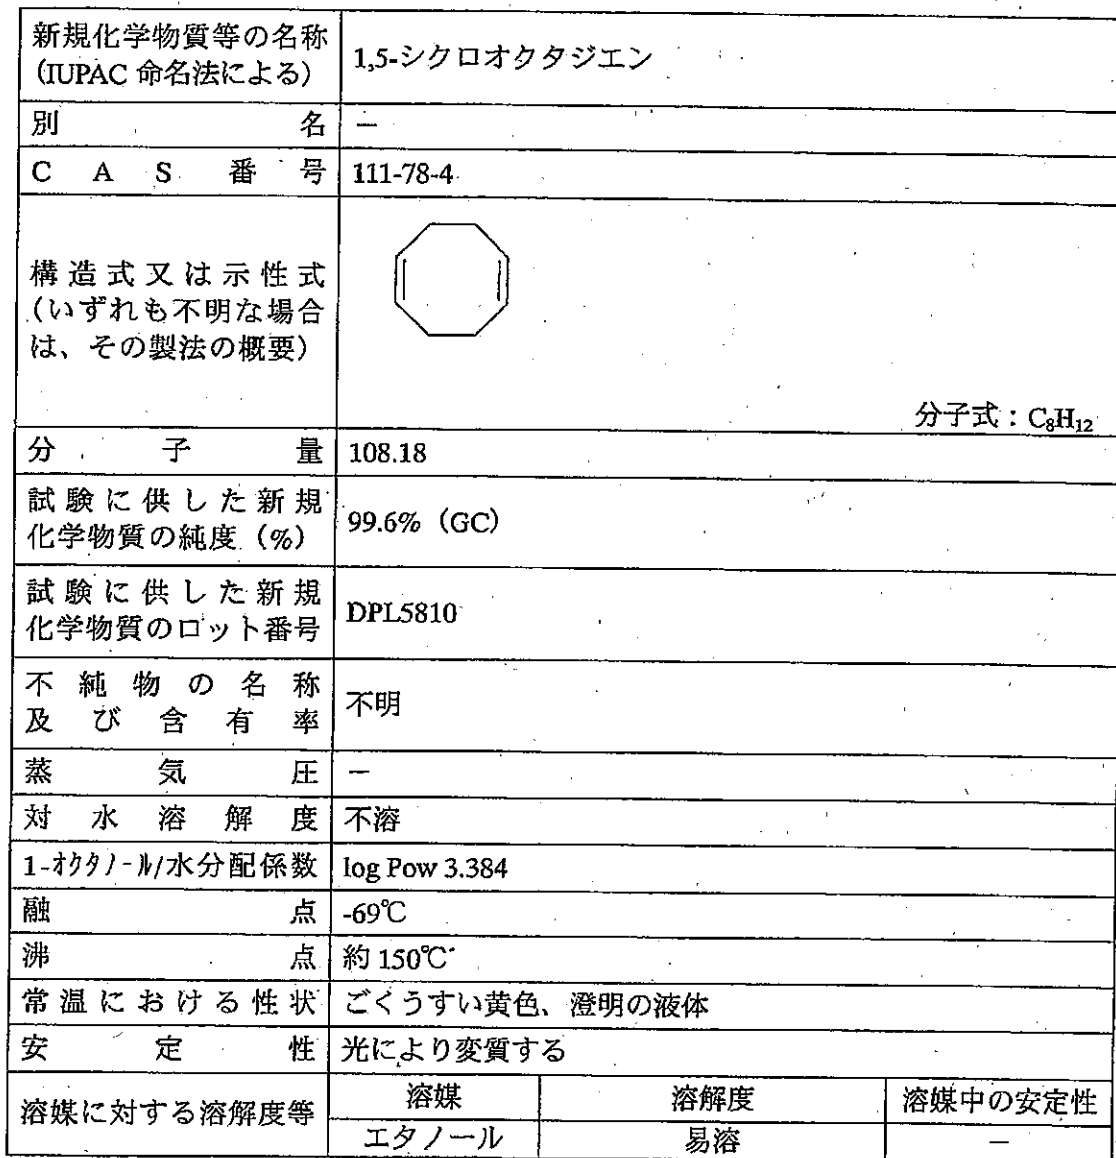 新規化学物質等の名称
(IUPAC 命名法による)
1,5-シクロオクタジエン
別名
－
CAS番号
111-78-4
構造式又は示性式
(いずれも不明な場合
は、その製法の概要)
分子式：C₈H₁₂
分子量
108.18
試験に供した新規
化学物質の純度 (%)
99.6% (GC)
試験に供した新規
化学物質のロット番号
DPL5810
不純物の名称
及び含有率
不明
蒸気圧
－
対水溶解度
不溶
1-ｵｸﾀﾉｰﾙ/水分配係数
log Pow 3.384
融点
-69℃
沸点
約 150℃
常温における性状
ごくうすい黄色、澄明の液体
安定性
光により変質する
溶媒に対する溶解度等
溶媒 溶解度 溶媒中の安定性
エタノール 易溶 －